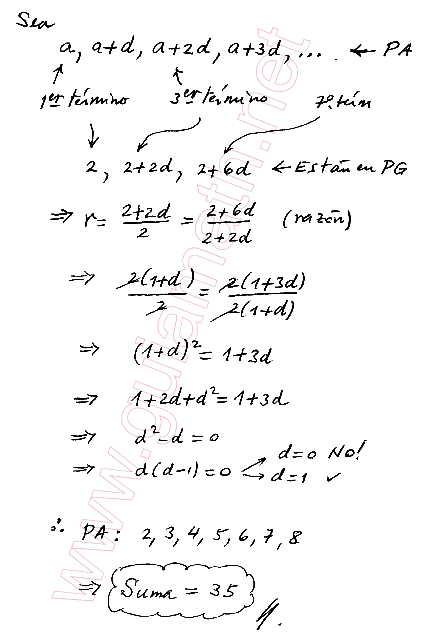 Sea
a, a+d, a+2d, a+3d, ... ← PA
1er término 3er término 7º térm
2, 2+2d, 2+6d ← Están en PG
⇒ r = (2+2d)/2 = (2+6d)/(2+2d) (razón)
⇒ 2(1+d)/2 = 2(1+3d)/2(1+d)
⇒ (1+d)² = 1+3d
⇒ 1+2d+d² = 1+3d
⇒ d²-d = 0
⇒ d(d-1) = 0 → d=0 No!
→ d=1 ✓
∴ PA: 2, 3, 4, 5, 6, 7, 8
⇒ Suma = 35
www.guiamath.net